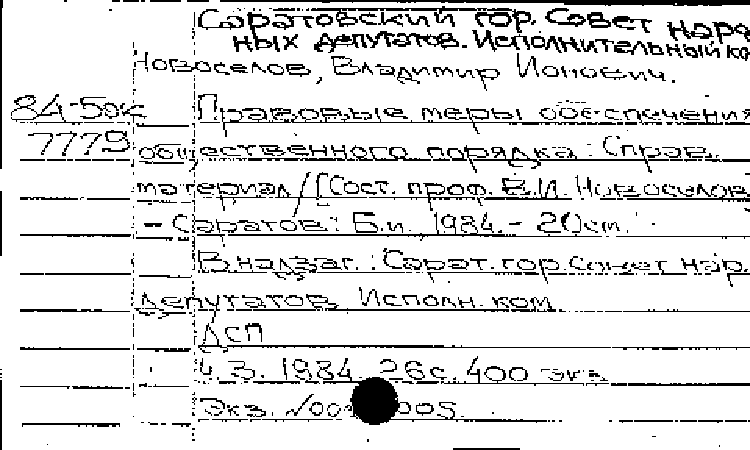 Саратовский гор. Совет народ
ных депутатов. Исполнительный ко
Новоселов, Владимир Ионович.
84-50к Правовые меры обеспечения
7779 общественного порядка: Справ.
материал / [Сост. проф. В.И. Новоселов
- Саратов: Б.и. 1984. - 20см.
В надзаг.: Сарат. гор. совет нар.
депутатов. Исполн. ком.
ДСП
Ч.3. 1984. 26с. 400 экз.
Экз. 005.